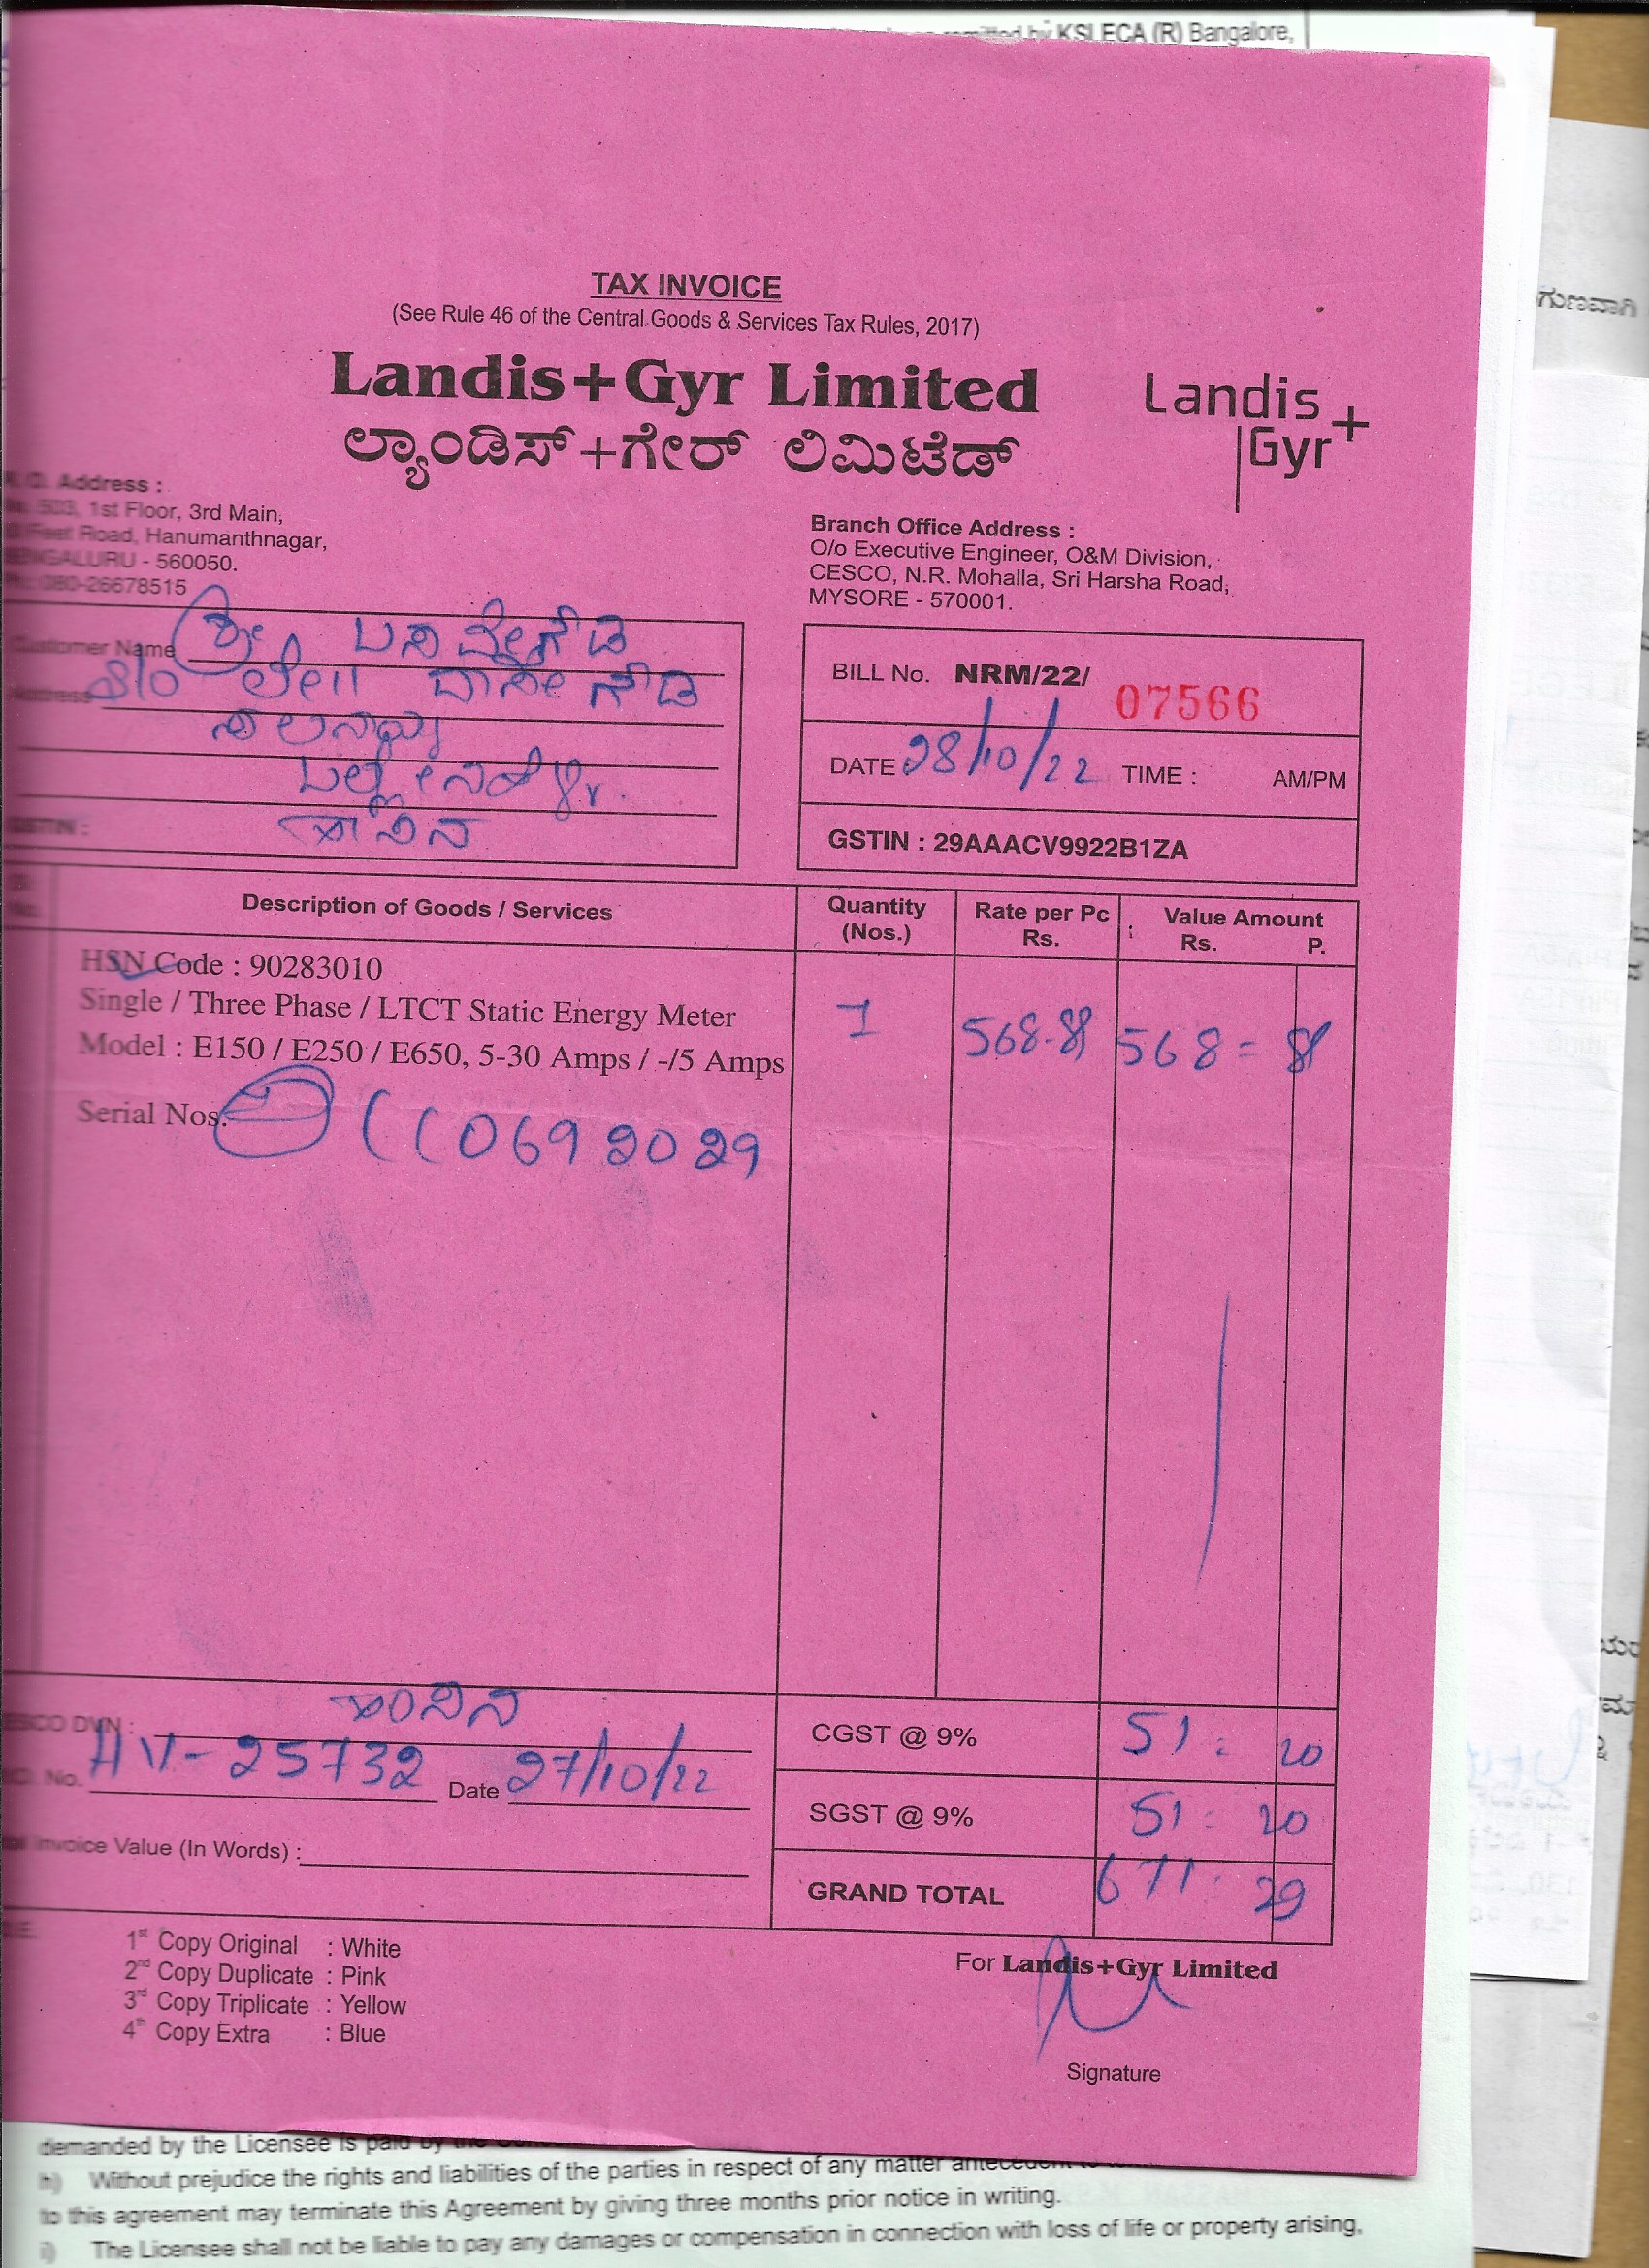 KSLECA (R) Bangalore,
TAX INVOICE
(See Rule 46 of the Central Goods & Services Tax Rules, 2017)
Landis+Gyr Limited
ಲ್ಯಾಂಡಿಸ್+ಗೇರ್ ಲಿಮಿಟೆಡ್
Landis+
Gyr
Address :
503, 1st Floor, 3rd Main,
Feet Road, Hanumanthnagar,
BENGALURU - 560050.
080-26678515
Branch Office Address :
O/o Executive Engineer, O&M Division,
CESCO, N.R. Mohalla, Sri Harsha Road,
MYSORE - 570001.
Customer Name ಶ್ರೀ ಬಸವೇಗೌಡ
Address S/o ಲೇ॥ ದಾಸೇಗೌಡ
GSTIN :
BILL No. NRM/22/ 07566
DATE 28/10/22 TIME : AM/PM
GSTIN : 29AAACV9922B1ZA
Description of Goods / Services Quantity (Nos.) Rate per Pc Rs. Value Amount Rs. P.
HSN Code : 90283010
Single / Three Phase / LTCT Static Energy Meter
Model : E150 / E250 / E650, 5-30 Amps / -/5 Amps
1 568-89 568=89
Serial Nos. ((0692029
DVN :
No. HV-25732 Date 27/10/22
Invoice Value (In Words) :
CGST @ 9% 51: 20
SGST @ 9% 51: 20
GRAND TOTAL 671: 29
1st Copy Original : White
2nd Copy Duplicate : Pink
3rd Copy Triplicate : Yellow
4th Copy Extra : Blue
For Landis+Gyr Limited
Signature
demanded by the Licensee is paid by the
h) Without prejudice the rights and liabilities of the parties in respect of any matter
to this agreement may terminate this Agreement by giving three months prior notice in writing.
i) The Licensee shall not be liable to pay any damages or compensation in connection with loss of life or property arising,